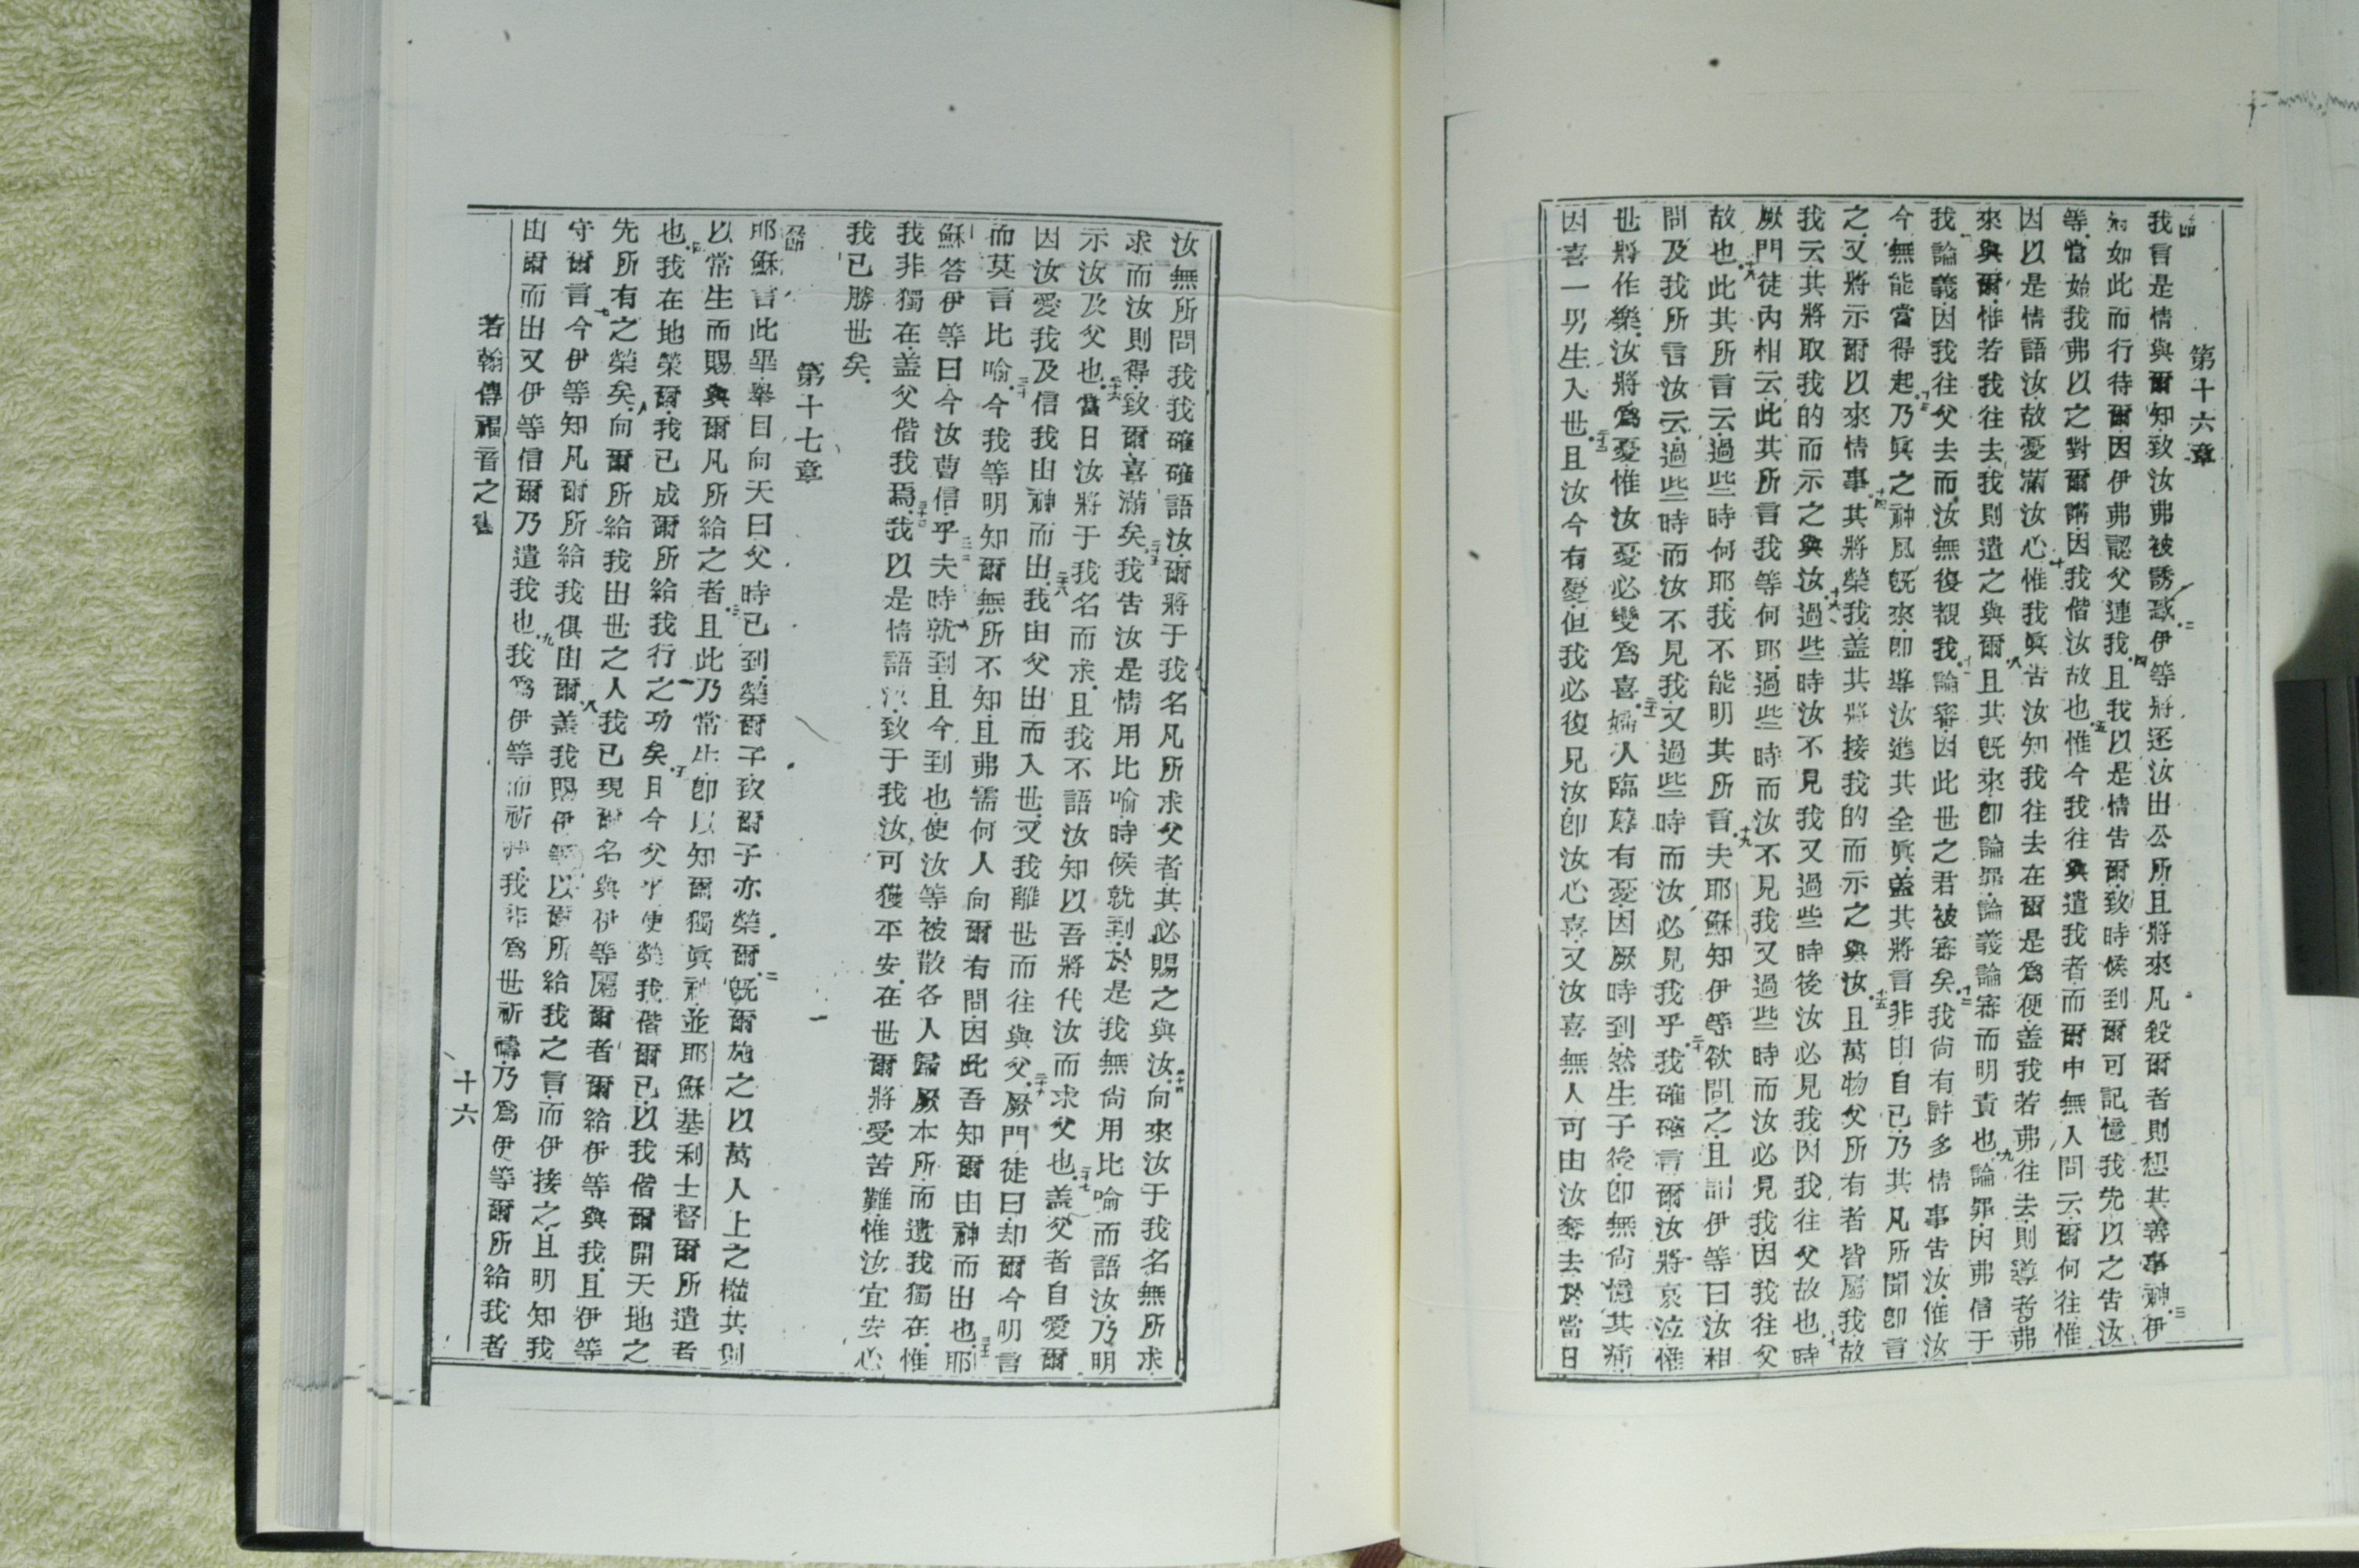 第十六章
我言是情與爾知致汝弗被誘惑伊等將逐汝出公所且將來凡殺爾者則想其善事神伊
如此而行待爾因伊弗認父連我且我以是情告爾致時候到爾可記憶我先以之告汝
等當始我弗以之對爾講因我偕汝故也惟今我往與遣我者而爾中無人問云爾何往惟
因以是情語汝故憂滿汝心惟我眞告汝知我往去在爾是爲便盖我若弗往去則導者弗
來與爾惟若我往去我則遣之與爾且其旣來卽論罪論義論審而明責也論罪因弗信于
我論義因我往父去而汝無復覩我論審因此世之君被審矣我尚有許多情事告汝惟汝
今無能當得起乃眞之神風旣來卽導汝進共全眞盖其將言非由自已乃其凡所聞卽言
之又將示爾以來情事其將榮我盖其將接我的而示之與汝且萬物父所有者皆屬我故
我云其將取我的而示之與汝過些時汝不見我又過些時後汝必見我因我往父故也時
厥門徒內相云此其所言我等何耶過些時而汝不見我又過些時而汝必見我因我往父
故也此其所言云過些時何耶我不能明其所言夫耶穌知伊等欲問之且謂伊等曰汝相
問及我所言汝云過些時而汝不見我又過些時而汝必見我乎我確確言爾汝將哀泣惟
世將作樂汝將爲憂惟汝憂必變爲喜婦人臨蓐有憂因厥時到然生子後卽無尚憶其痛
因喜一男生入世且汝今有憂但我必復見汝卽汝心喜又汝喜無人可由汝奪去於當日
汝無所問我我確確語汝爾將于我名凡所求父者其必賜之與汝向來汝于我名無所求
求而汝則得致爾喜滿矣我告汝是情用比喻時候就到於是我無尚用比喻而語汝乃明
示汝及父也當日汝將于我名而求且我不語汝知以吾將代汝而求父也盖父者自愛爾
因汝愛我及信我由神而出我由父出而入世又我離世而往與父厥門徒曰却爾今明言
而莫言比喻今我等明知爾無所不知且弗需何人向爾有問因此吾知爾由神而出也耶
穌答伊等曰今汝曹信乎夫時就到且今到也使汝等被散各人歸厥本所而遺我獨在惟
我非獨在盖父偕我焉我以是情語汝致于我汝可獲平安在世爾將受苦難惟汝宜安心
我已勝世矣
第十七章
耶穌言此畢舉目向天曰父時已到榮爾子致爾子亦榮爾旣爾施之以萬人上之權其則
以常生而賜與爾凡所給之者且此乃常生卽以知爾獨眞神並耶穌基利士督爾所遣者
也我在地榮爾我已成爾所給我行之功矣且今父乎使榮我偕爾已以我偕爾開天地之
先所有之榮矣向爾所給我出世之人我已現爾名與伊等屬爾者爾給伊等與我且伊等
守爾言今伊等知凡爾所給我俱由爾盖我賜伊等以爾所給我之言而伊接之且明知我
由爾而出又伊等信爾乃遣我也我爲伊等而祈神我非爲世祈禱乃爲伊等爾所給我者
若翰傳福音之書
十六